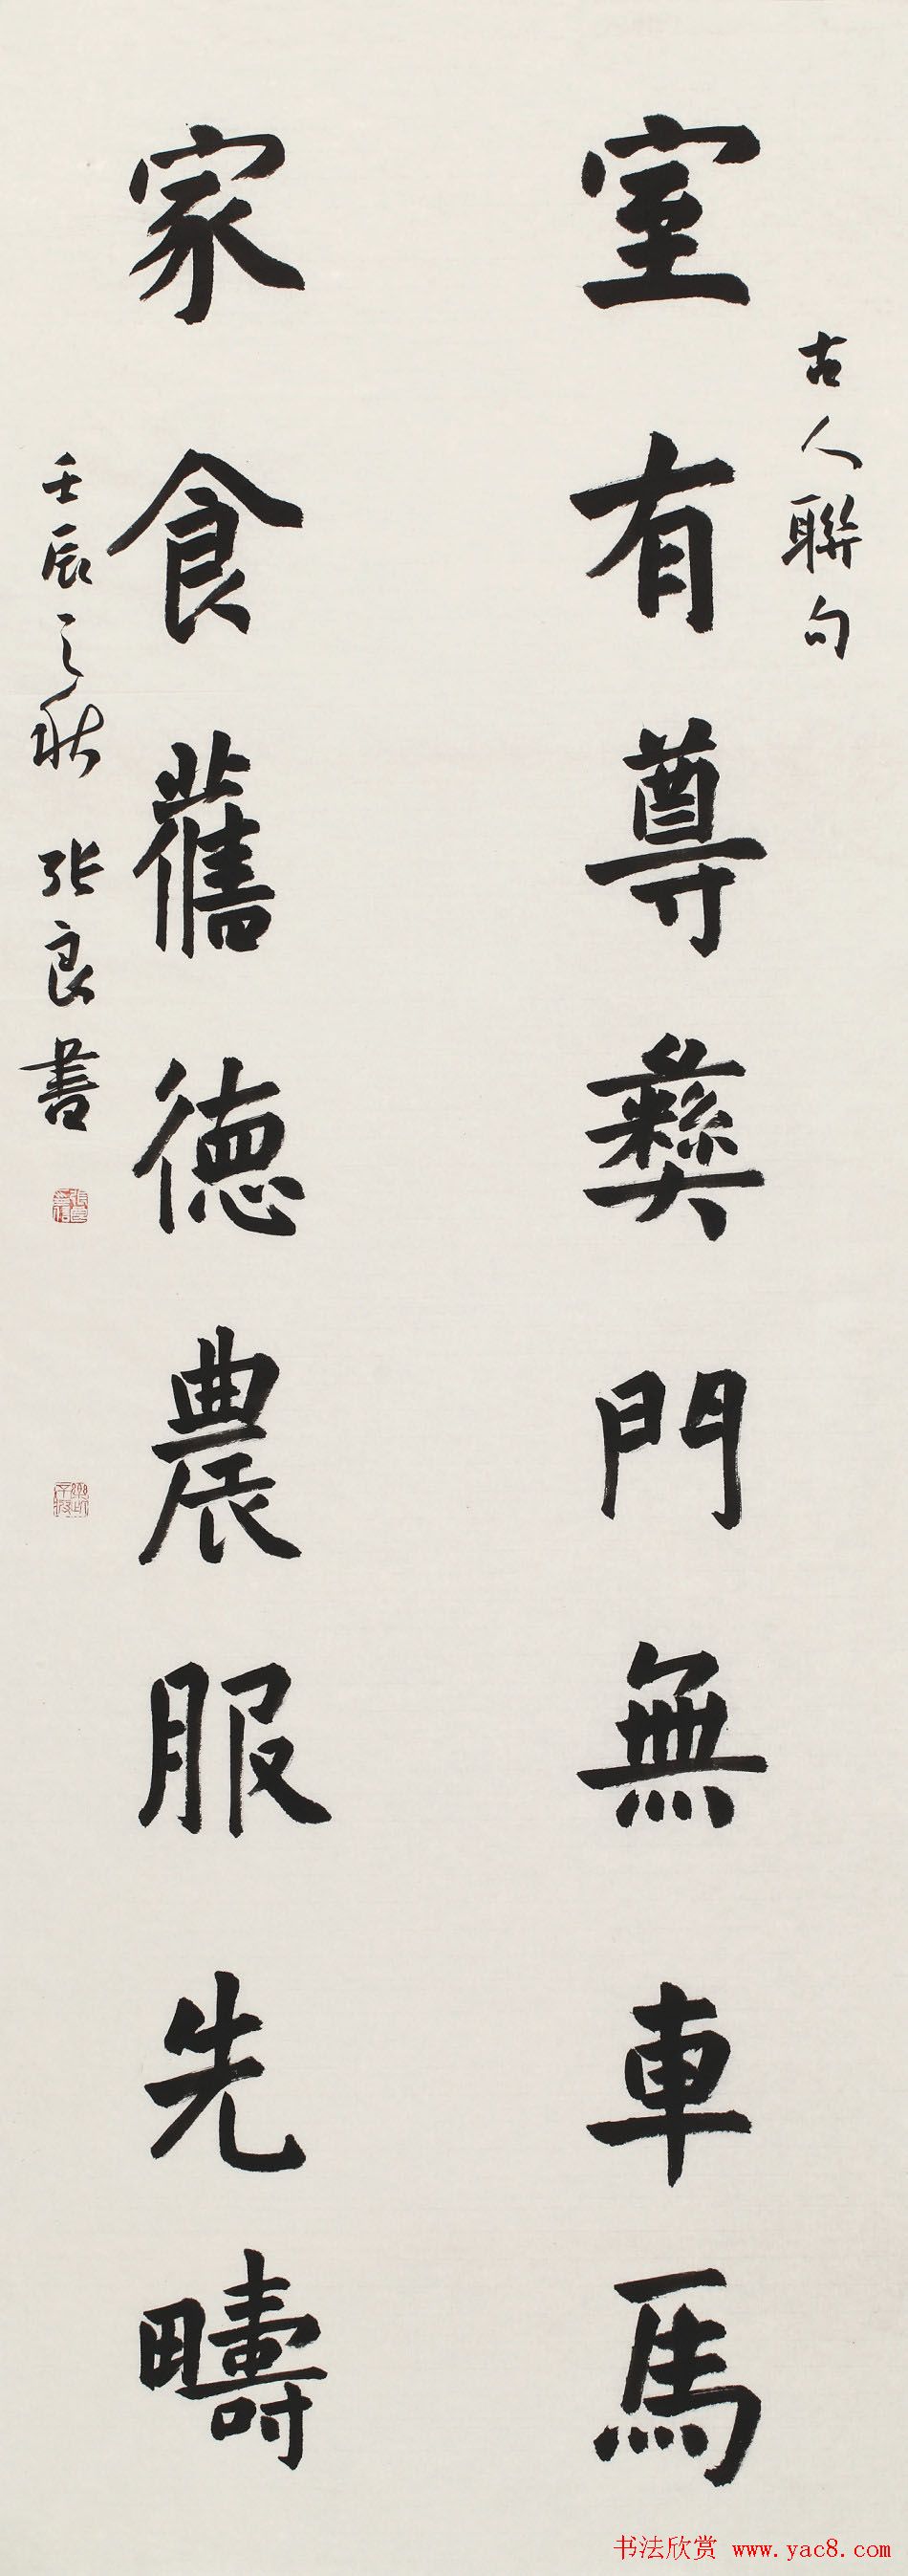 古人聯句
室有尊彝門無車馬
家食舊德農服先疇
壬辰之秋 张良書
书法欣赏 www.yac8.com